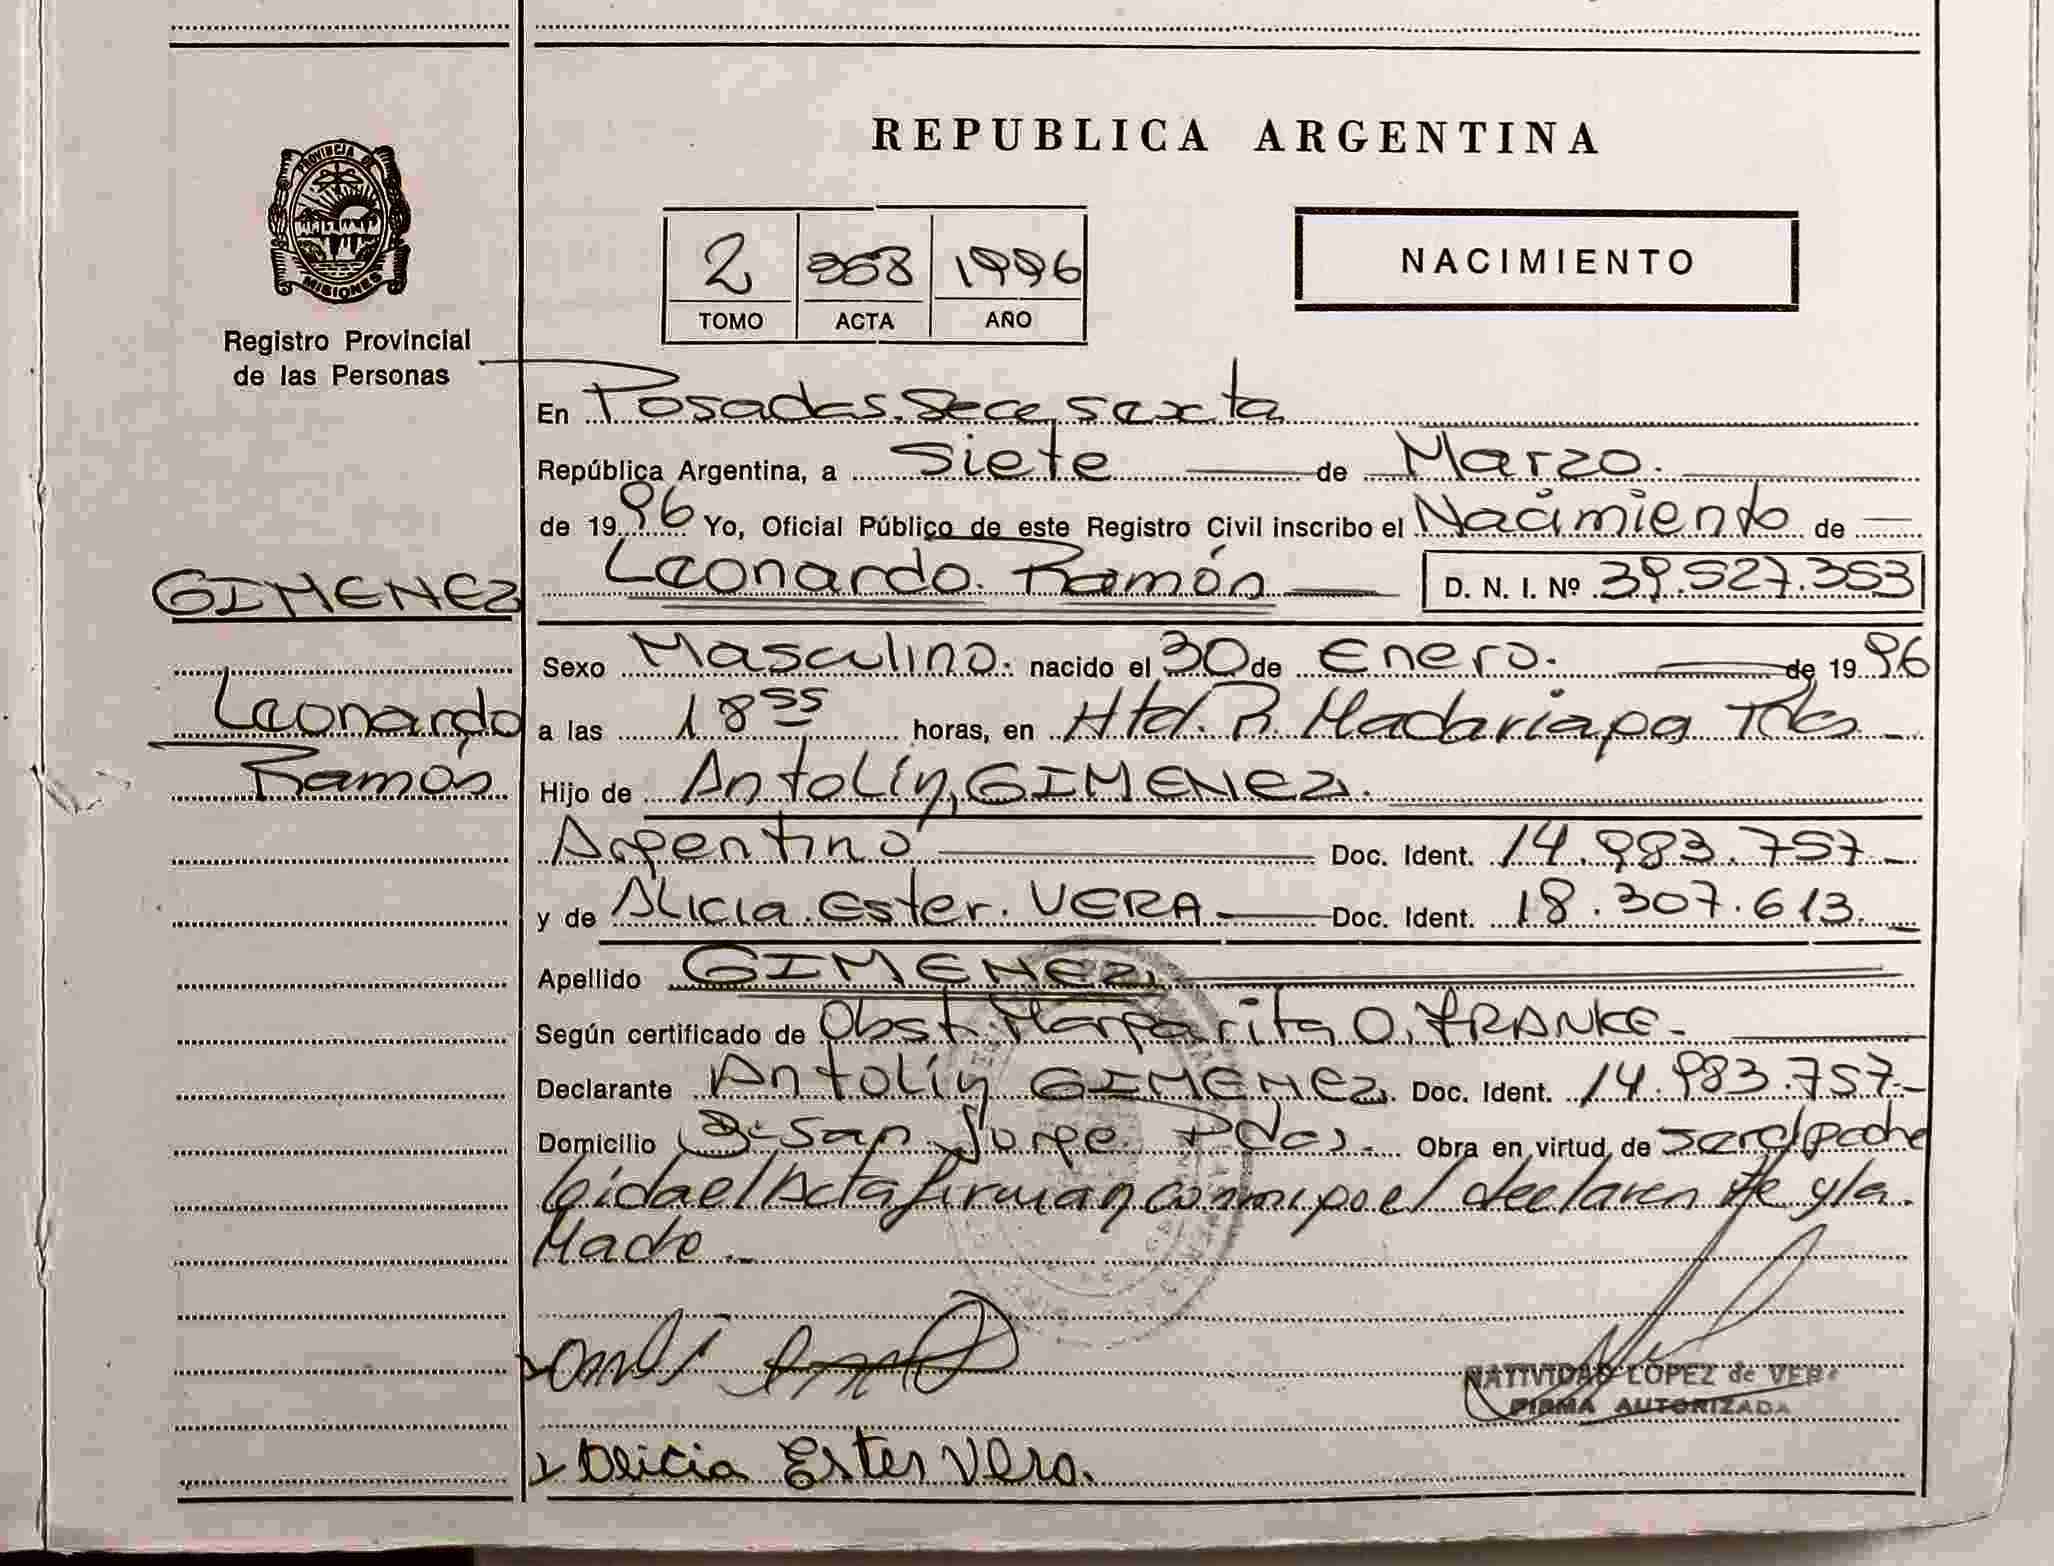 REPUBLICA ARGENTINA
PROVINCIA DE
MISIONES
Registro Provincial
de las Personas
NACIMIENTO
2 1996
TOMO ACTA AÑO
En Posadas. Secc sexta
República Argentina, a Siete de Marzo.
de 1996 Yo, Oficial Público de este Registro Civil inscribo el Nacimiento de
Leonardo. Ramón D. N. I. Nº 39.527.353
GIMENEZ
Leonardo
Ramón
Sexo Masculino. nacido el 30 de Enero. de 1996
a las 18 55 horas, en Htal. R. Madariaga
Hijo de Antolín, GIMENEZ.
Argentino Doc. Ident. 14.983.757
y de Alicia. Ester. VERA Doc. Ident. 18.307.613.
Apellido GIMENEZ
Según certificado de Obst. Margarita O. FRANKE
Declarante Antolín GIMENEZ. Doc. Ident. 14.983.757
Domicilio San Jorge Pdas. Obra en virtud de
el Acta firman conmigo el declarante y la
Madre.
NATIVIDAD LOPEZ de VERA
FIRMA AUTORIZADA
Alicia Ester Vera.